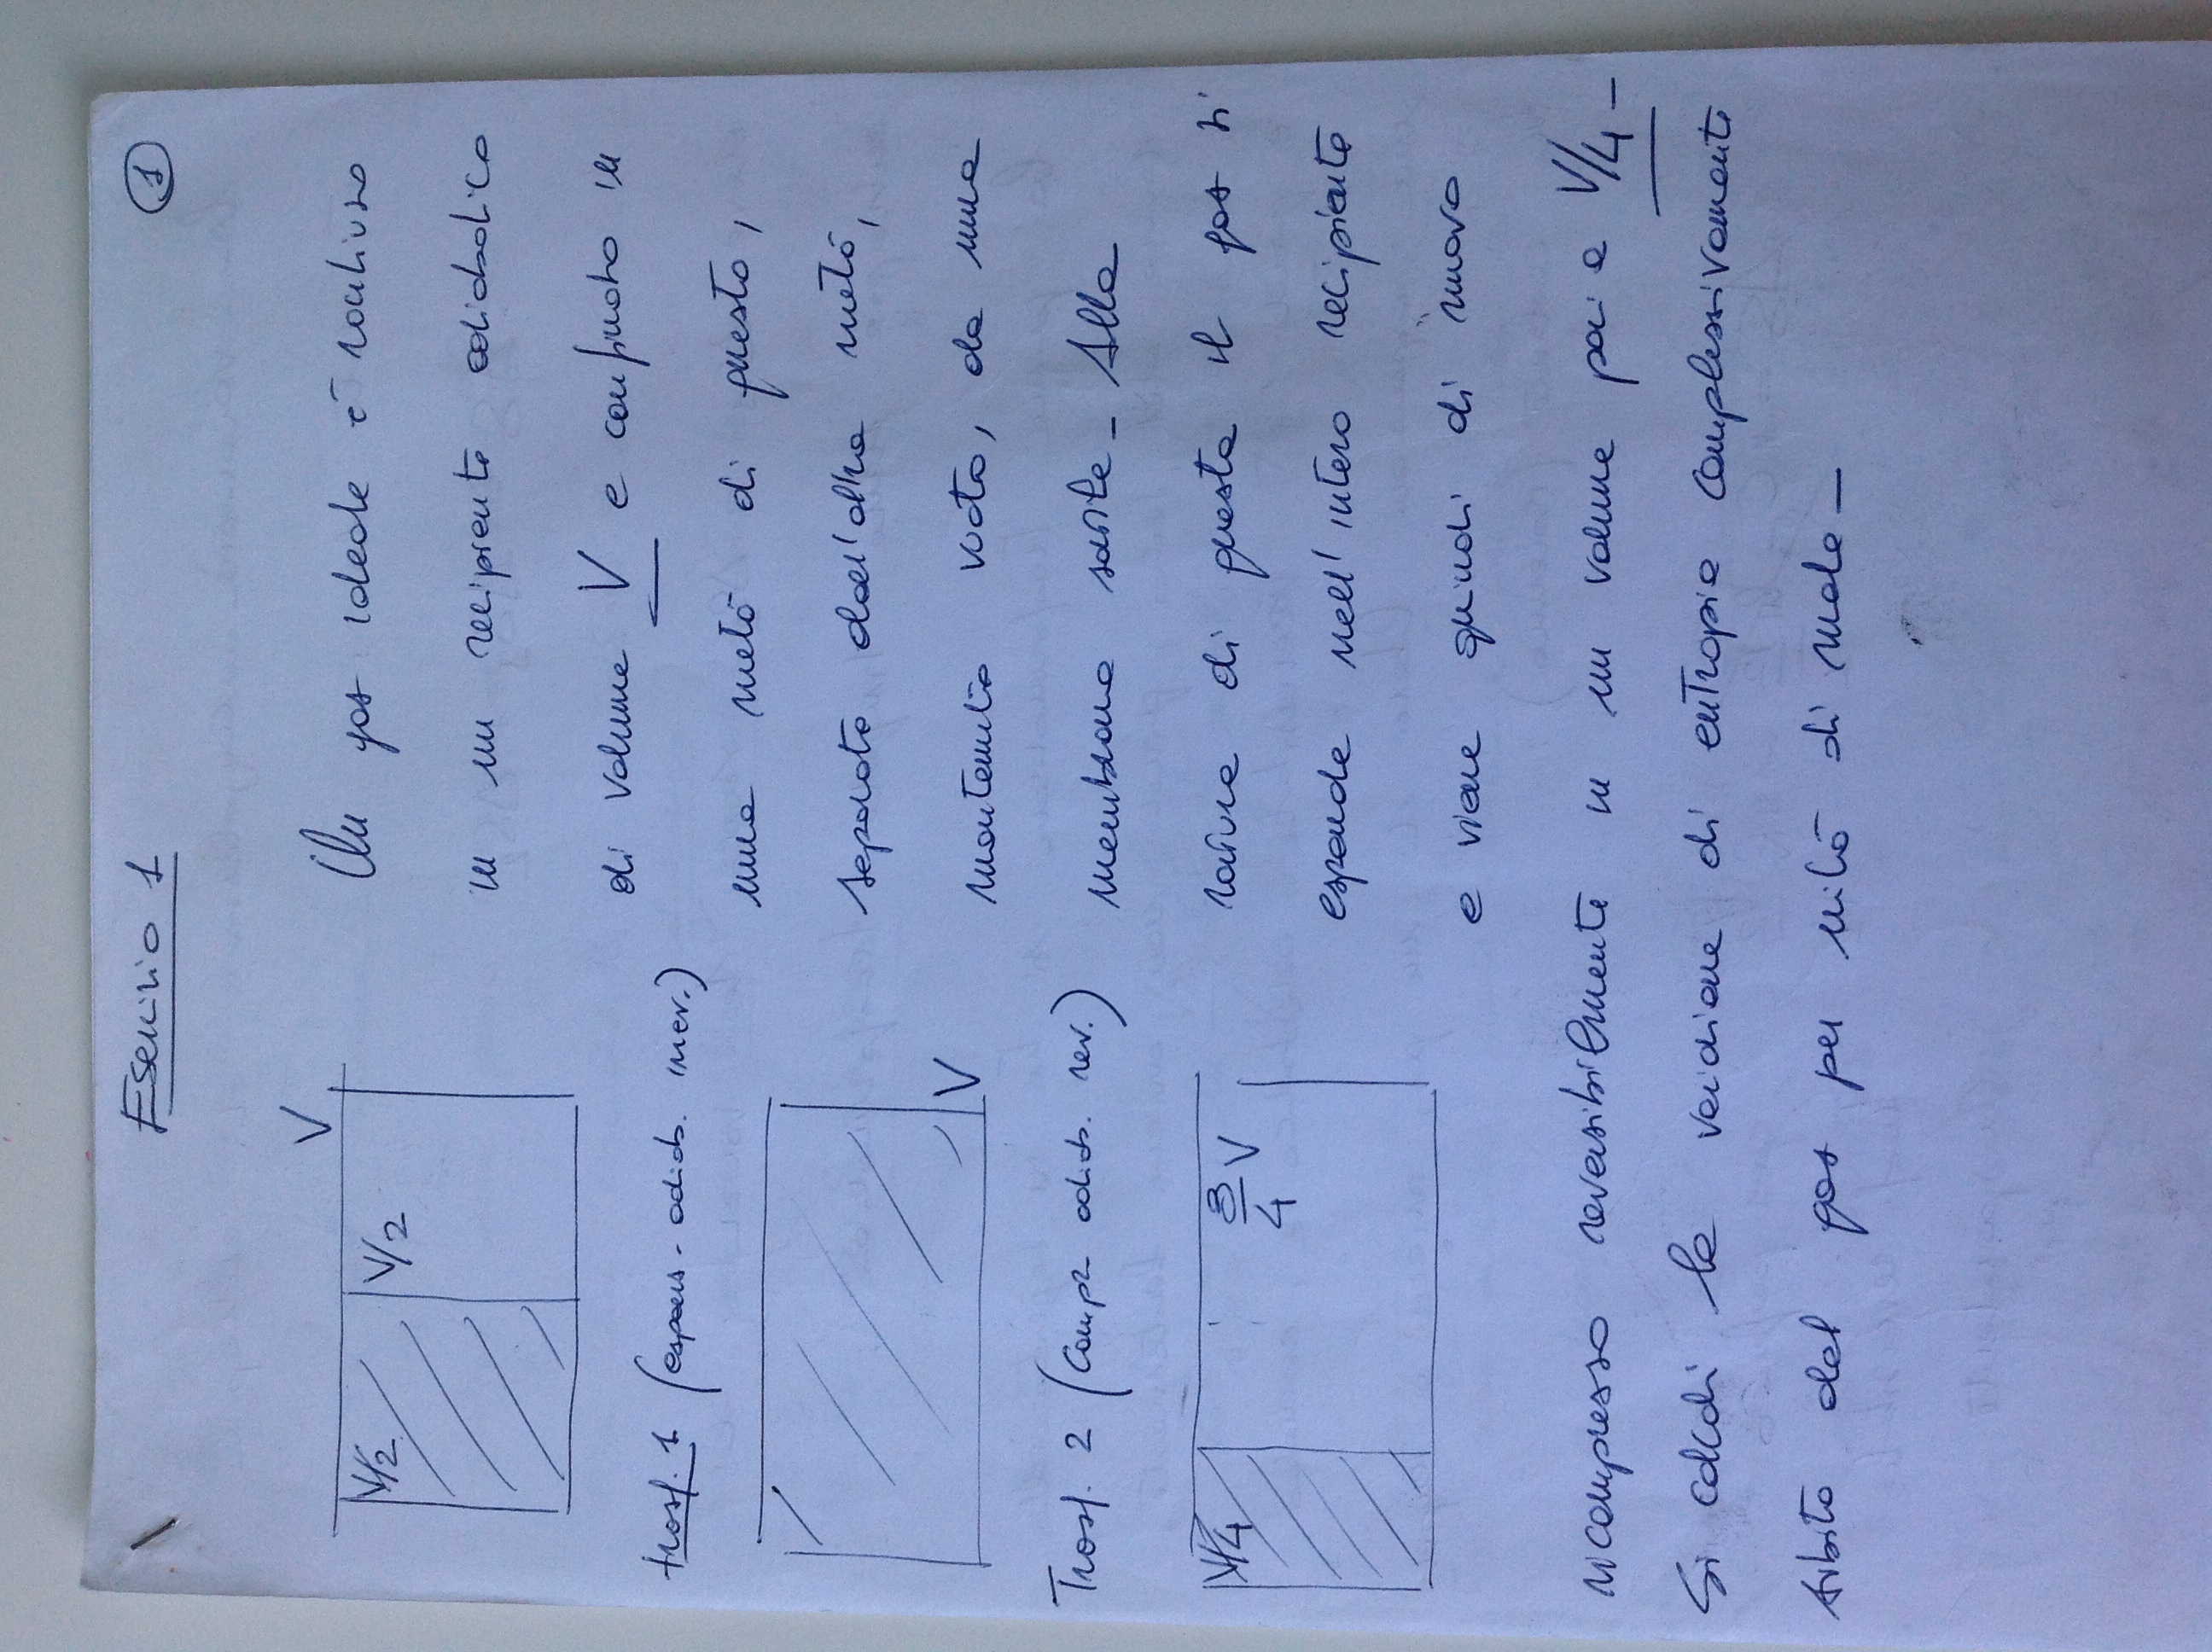 Esercizio 1
1
V
V/2 V/2
trasf. 1 (espans. adiab. irrev.)
V
Trasf. 2 (Compr. adiab. rev.)
V/4 3/4 V
Un gas ideale è racchiuso
in un recipiente adiabatico
di volume V e confinato in
una metà di questo,
separata dall'altra metà,
mantenuta vuota, da una
membrana sottile - Alla
rottura di questa il gas si
espande nell'intero recipiente
e viene quindi di nuovo
ricompresso reversibilmente in un volume pari a V/4 -
Si calcoli la variazione di entropia complessivamente
subita dal gas per unità di mole -